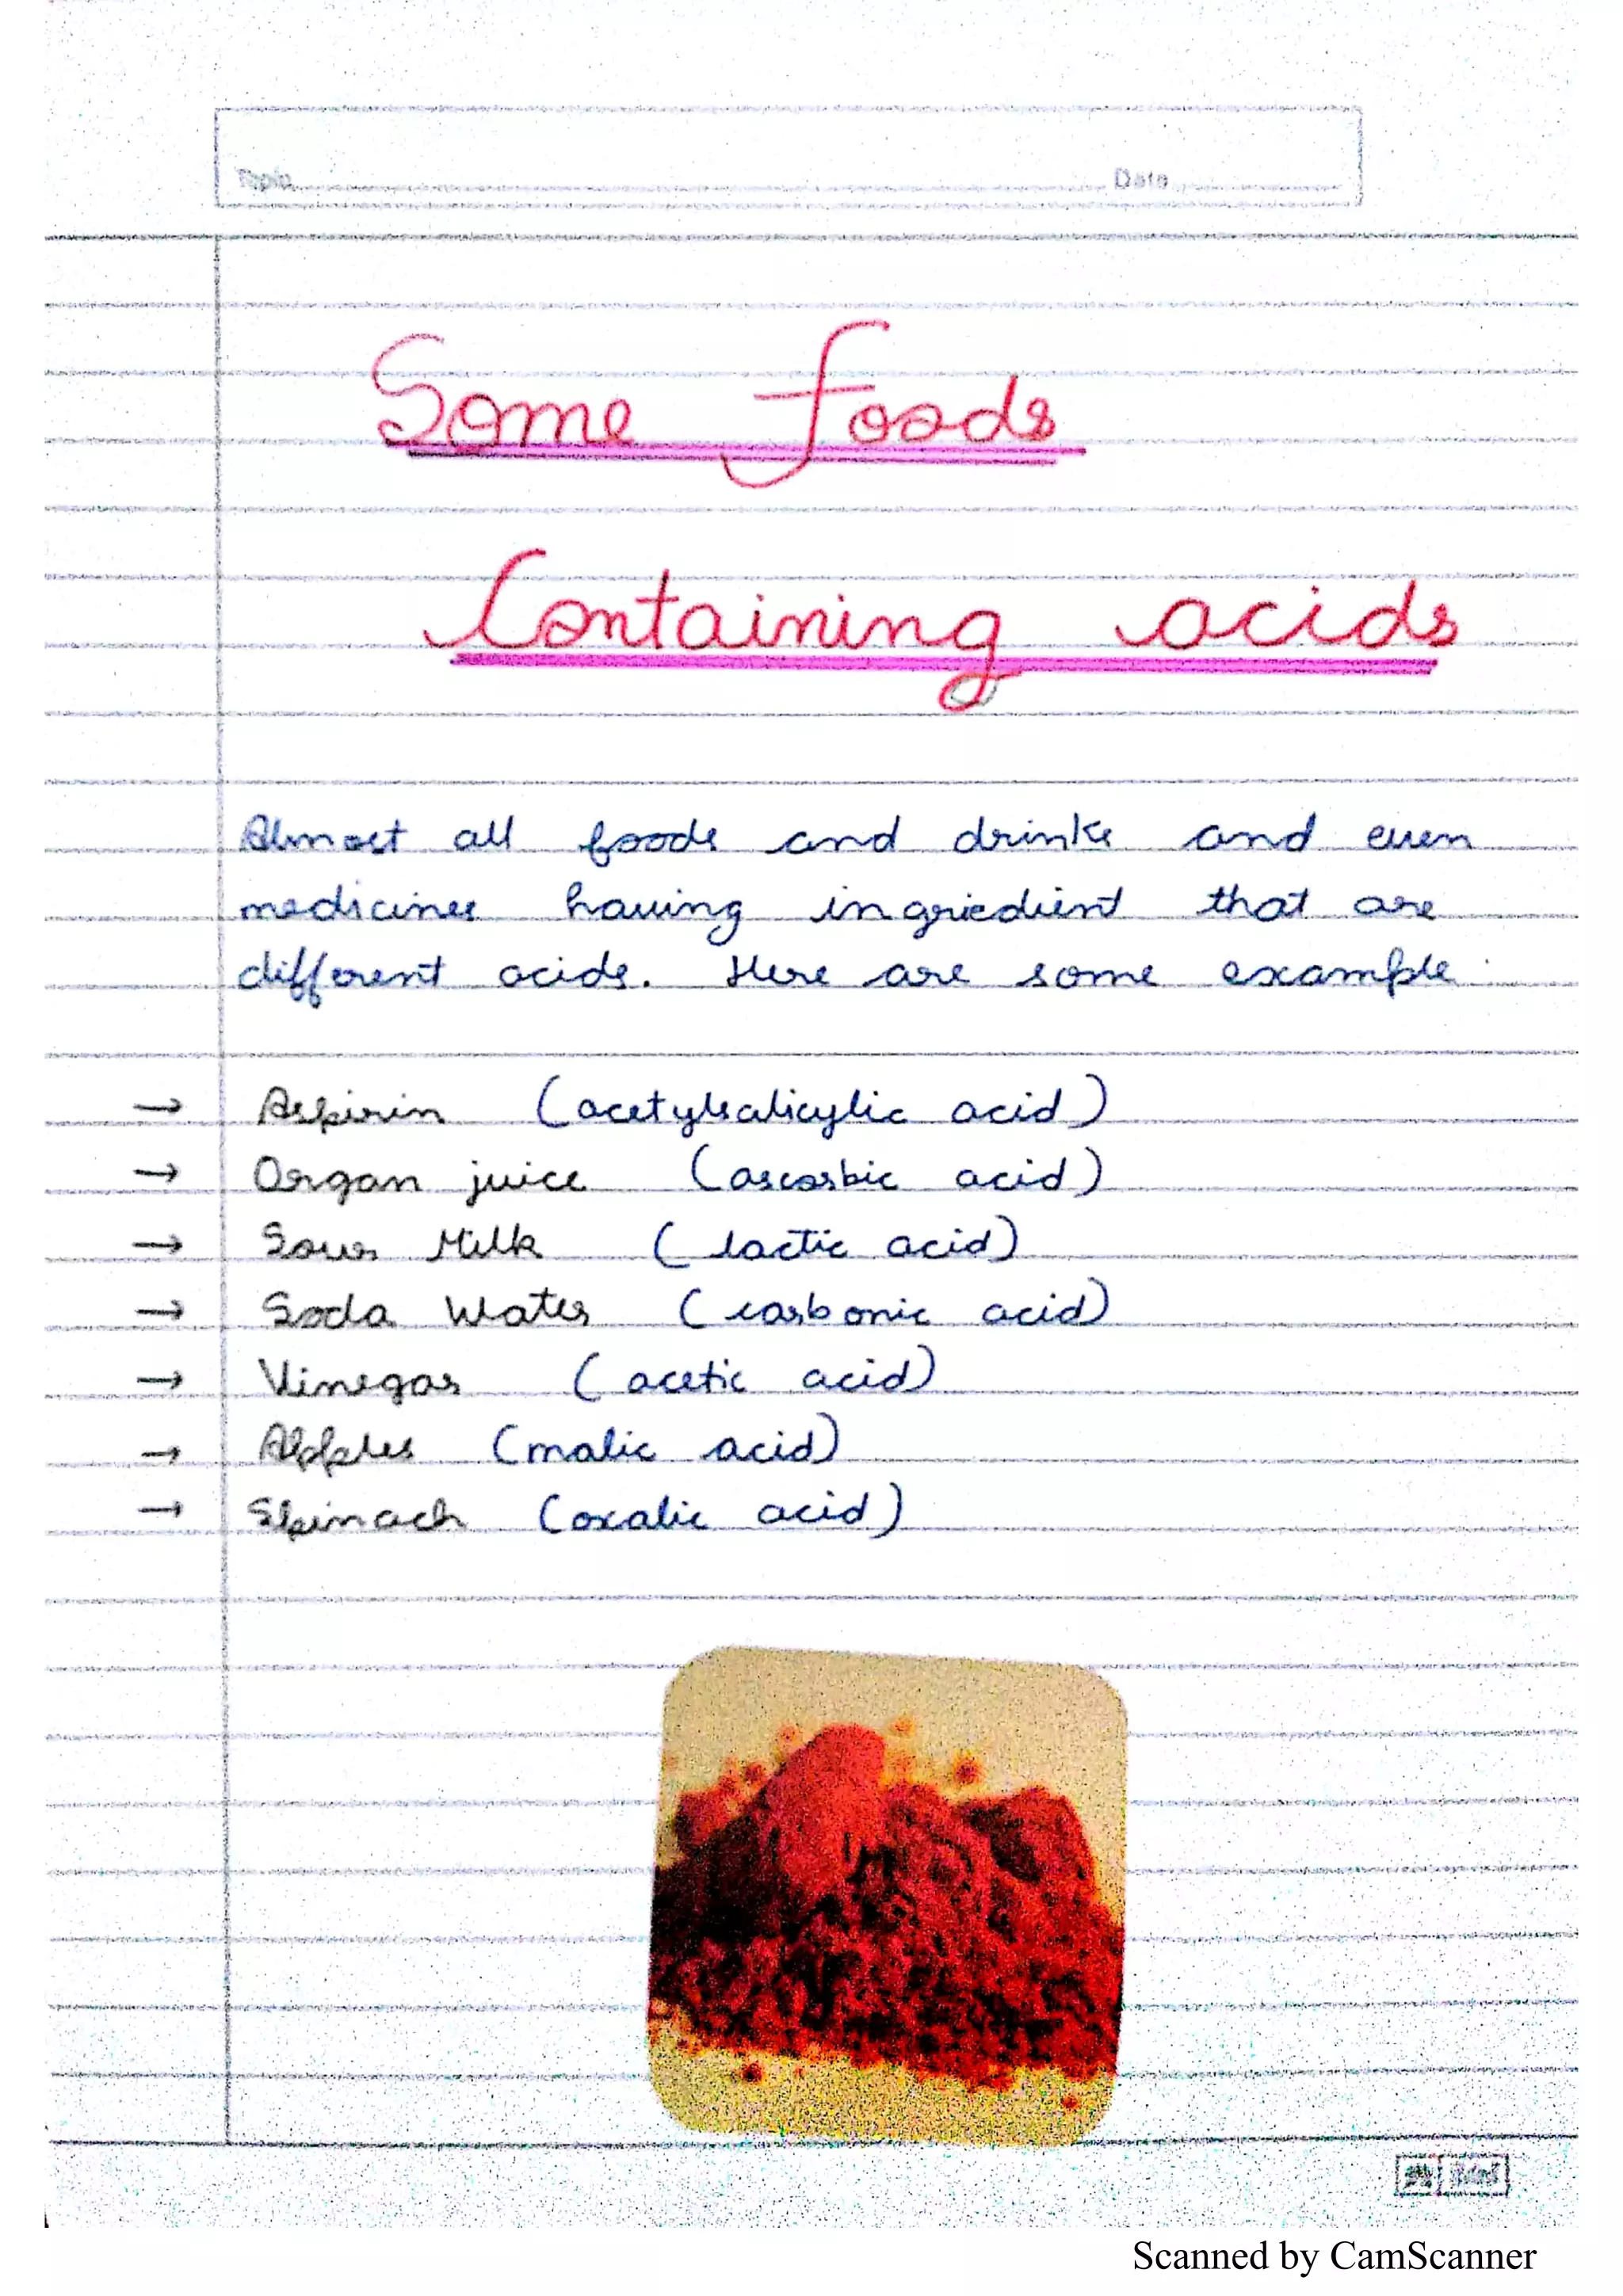 Topic
Date
Some foods
Containing acids
Almost all foods and drinks and even
medicines having ingriedient that are
different acids. Here are some example :
→ Aspirin (acetylsalicylic acid)
→ Organ juice (ascorbic acid)
→ Sour Milk (lactic acid)
→ Soda Water (carbonic acid)
→ Vinegar (acetic acid)
→ Apples (malic acid)
→ Spinach (oxalic acid)
Scanned by CamScanner